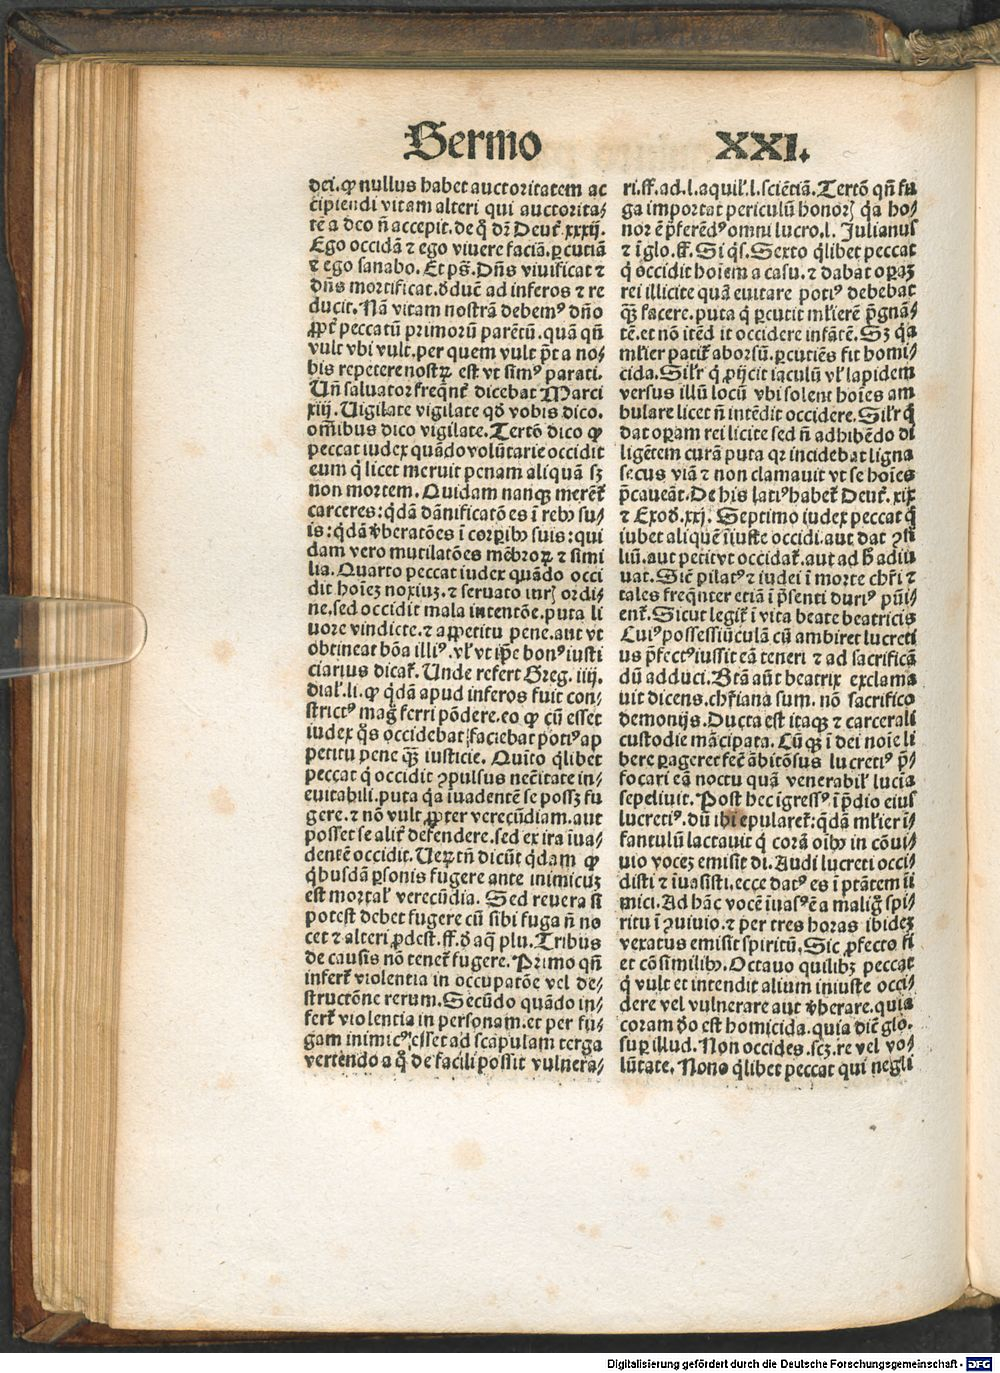 Sermo XXI.
dei. ꝙ nullus habet auctoritatem ac
cipiendi vitam alteri qui auctorita⸗
tē a deo n̄ accepit. de q̇ dr̄ Deut̄. xxxij.
Ego occidā ⁊ ego vivere faciā. ꝑcutiā
⁊ ego sanabo. Et ps̄. Dn̄s viuificat ⁊
dn̄s mortificat. ꝺducit ad inferos ⁊ re
ducit. Nā vitam nostrā debemꝰ dn̄o
ꝓpt̄ peccatū primorū parētū. quā qn̄
vult vbi vult. per quem vult pt̄ a no⸗
bis repetere nostrꝝ est vt simꝰ parati.
Un̄ saluator freqn̄t̄ dicebat Marci
xiij. Uigilate vigilate qꝺ vobis dico.
om̄ibus dico vigilate. Tertō dico ꝙ
peccat iudex quādo volūtarie occidit
eum q̇ licet meruit penam aliquā sꝫ
non mortem. Quidam nanqꝫ merēt̄
carceres: qdā dānificatōes ī rebꝰ su⸗
is: qdā v̄beratōes ī corꝑibꝰ suis: qui
dam vero mutilatōes mēbroꝝ ⁊ simi
lia. Quarto peccat iudex quādo occi
dit hoīeꝫ noxiuꝫ. ⁊ seruato iur̄ ordi⸗
ne. sed occidit mala intentōe. puta li
uore vindicte. ⁊ appetitu pene. aut vt
obtineat bōa illiꝰ. vl̄ vt ip̄e bonꝰ iusti
ciarius dicat̄. Unde refert Greg. iiij.
dial̄. li. ꝙ qdā apud inferos fuit con⸗
strictꝰ mag̊ ferri pōdere. eo ꝙ cū esset
iudex q̊s occidebat faciebat potiꝰ ap
petitu pene qꝫ̄ iusticie. Quīto qlibet
peccat q̇ occidit ꝯpulsus nec̄itate in⸗
euitabili. puta qa īuadentē se possꝫ fu
gere. ⁊ nō vult ꝓpter verecūdiam. aut
posset se alit̄ defendere. sed ex ira īua⸗
dentē occidit. Ueꝝtn̄ dicūt qdam ꝙ
qbusdā ꝑsonis fugere ante inimicuꝫ
est mortal̄ verecūdia. Sed reuera si
potest debet fugere cū sibi fuga n̄ no
cet ⁊ alteri ꝓdest. ff. ꝺ aq̄ plu. Tribus
de causis nō tenet̄ fugere. Primo qn̄
infert̄ violentia in occupatōe vel de⸗
structōne rerum. Secūdo quādo in⸗
fert̄ violentia in personam. et per fu⸗
gam inimicꝰ esset ad scapulam terga
vertendo a q̊ de facili possit vulnera⸗
ri. ff. ad. l. aquil̄. l. sciētiā. Tertō qn̄ fu
ga importat periculū honorꝭ qa ho⸗
nor ē p̄ferēdꝰ omni lucro. l. Julianus
⁊ ī glo. ff. Si qs. Sexto qlibet peccat
q̇ occidit hoīem a casu. ⁊ dabat oꝑaꝫ
rei illicite quā euitare potiꝰ debebat
qꝫ facere. puta q̇ ꝑcutit ml̄ierē p̄gnā⸗
tē. et nō itēd it occidere infātē. Sꝫ qa
ml̄ier patit̄ aborsū. ꝑcutiēs fit homi⸗
cida. Sil̄r q̇ ꝓijcit iaculū vl̄ lapidem
versus illū locū vbi solent hoīes am
bulare licet n̄ intēdit occidere. Sil̄r q̇
dat oꝑam rei licite sed n̄ adhibēdo di
ligētem curā puta qꝛ incidebat ligna
secus viā ⁊ non clamauit vt se hoīes
p̄caueāt. De his latiꝰ habet̄ Deut̄. xix
⁊ Exoꝺ. xxj. Septimo iudex peccat q̇
iubet aliquē īiuste occidi. aut dat ꝯsi
liū. aut petit vt occidat̄. aut ad h̄ adiu
uat. Sic̄ pilatꝰ ⁊ iudei ī morte chr̄i ⁊
tales freqn̄ter etiā ī p̄senti duriꝰ pūi⸗
ent̄. Sicut legit̄ ī vita beate beatricis
Cuiꝰ possessiūculā cū ambiret lucreti
us p̄fectꝰ iussit eā teneri ⁊ ad sacrificā
dū adduci. Btā aūt beatrix exclama
uit dicens. chr̄iana sum. nō sacrifico
demonijs. Ducta est itaqꝫ ⁊ carcerali
custodie mācipata. Cūqꝫ ī dei noīe li
bere ꝑageret fec̄ ābitōsus lucretiꝰ p̄⸗
focari eā noctu quā venerabil̄ lucia
sepeliuit. Post hec īgressꝰ ī p̄dio eius
lucretiꝰ. dū ibi epularet̄: qdā ml̄ier ī⸗
fantulū lactauit q̇ corā oībꝰ in cōui⸗
uio voceꝫ emisit di. Audi lucreti occi⸗
disti ⁊ īuasisti. ecce datꝰ es ī ptātem īi
mici. Ad hāc vocē īuasꝰ ē a malig̊ spi⸗
ritu ī ꝯuiuio. ⁊ per tres horas ibideꝫ
vexatus emisit spiritū. Sic ꝓfecto fi
et cōsimilibꝰ. Octauo quilibꝫ peccat
q̇ vult et intendit alium iniuste occi⸗
dere vel vulnerare aut v̄berare. quia
coram ꝺo est homicida. quia dic̄ glo.
suꝑ illud. Non occides. scꝫ. re vel vo⸗
lūtate. Nono qlibet peccat qui negli
Digitalisierung gefördert durch die Deutsche Forschungsgemeinschaft - DFG